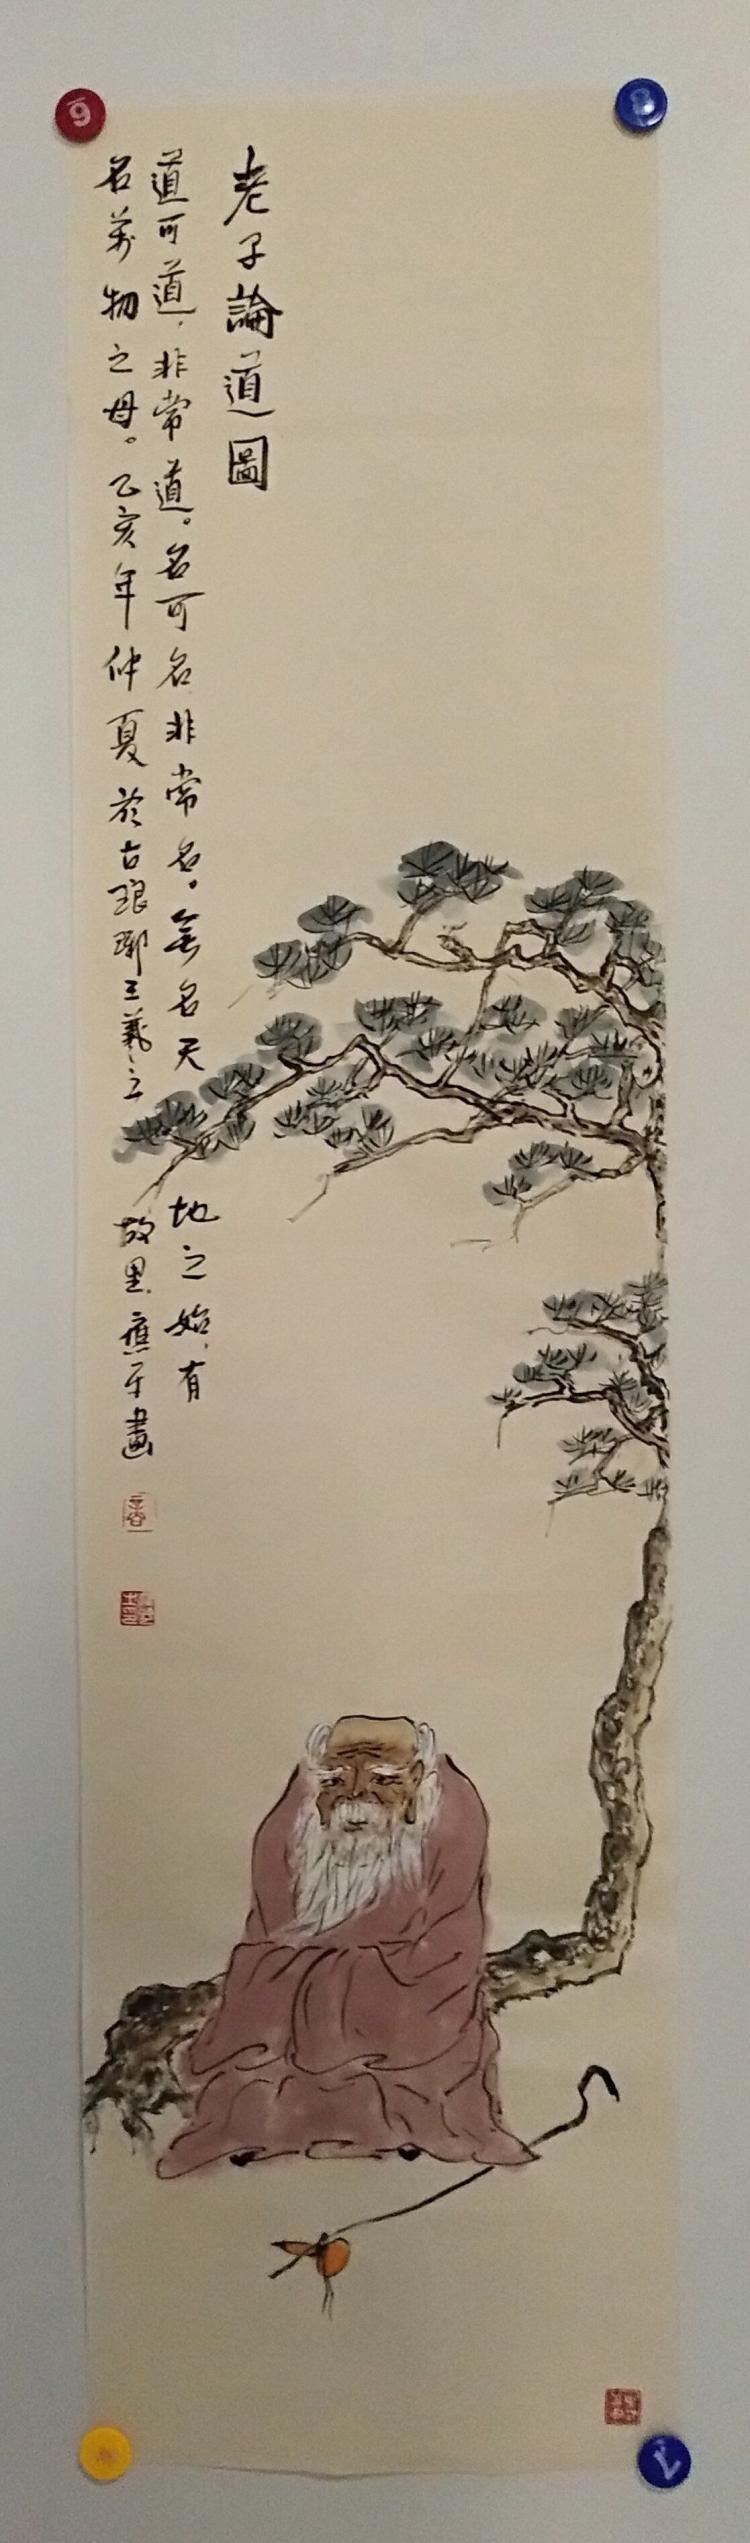 老子論道圖
道可道，非常道。名可名非常名。無名天地之始，有
名萬物之母。乙亥年仲夏於古琅琊王羲之故里應平畫
9
8